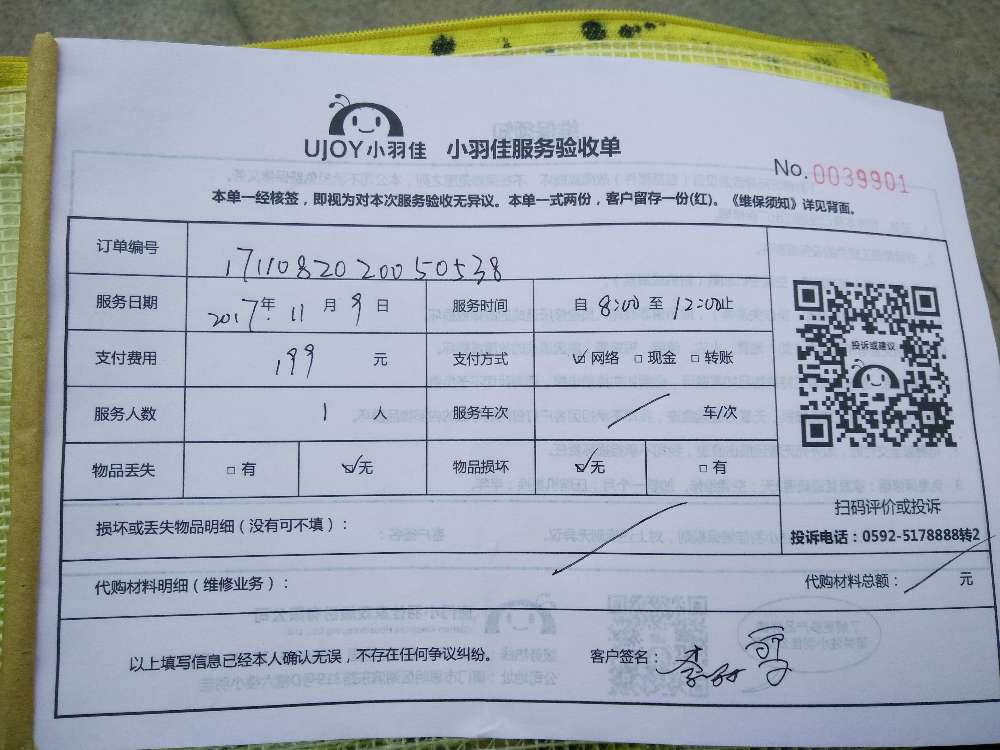 UJOY小羽佳 小羽佳服务验收单
No. 0039901
本单一经核签，即视为对本次服务验收无异议。本单一式两份，客户留存一份(红)。《维保须知》详见背面。
订单编号 1711082020050538
服务日期 2017年 11 月 9 日 服务时间 自 8:00 至 12:00止
支付费用 199 元 支付方式 ☑网络 □现金 □转账
服务人数 1 人 服务车次 / 车/次
物品丢失 □有 ☑无 物品损坏 ☑无 □有
投诉或建议
扫码评价或投诉
投诉电话：0592-5178888转2
损坏或丢失物品明细（没有可不填）：
代购材料明细（维修业务）： 代购材料总额： 元
以上填写信息已经本人确认无误，不存在任何争议纠纷。 客户签名：李